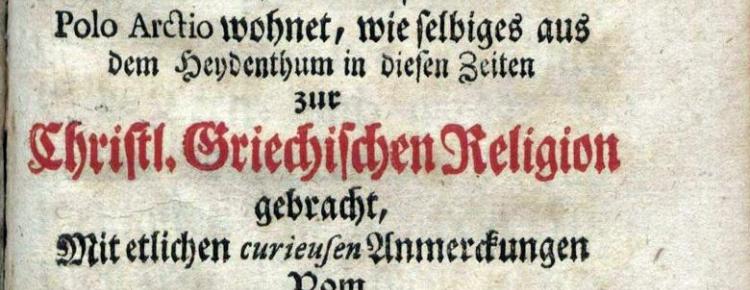 Polo Arctio wohnet, wie selbiges aus
dem Heydenthum in diesen Zeiten
zur
Christl. Griechischen Religion
gebracht,
Mit etlichen curieusen Anmerckungen
Vom